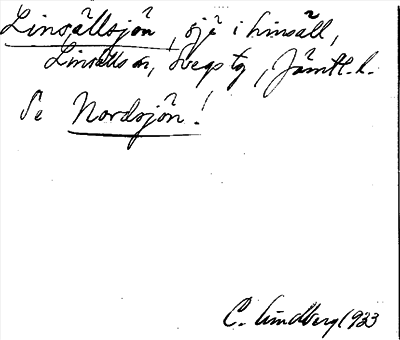 Linsällsjön, sjö i Linsäll,
Linsälls sn, Svegs tg, Jämtl. l.
Se Nordsjön!
C. Lindberg 1933